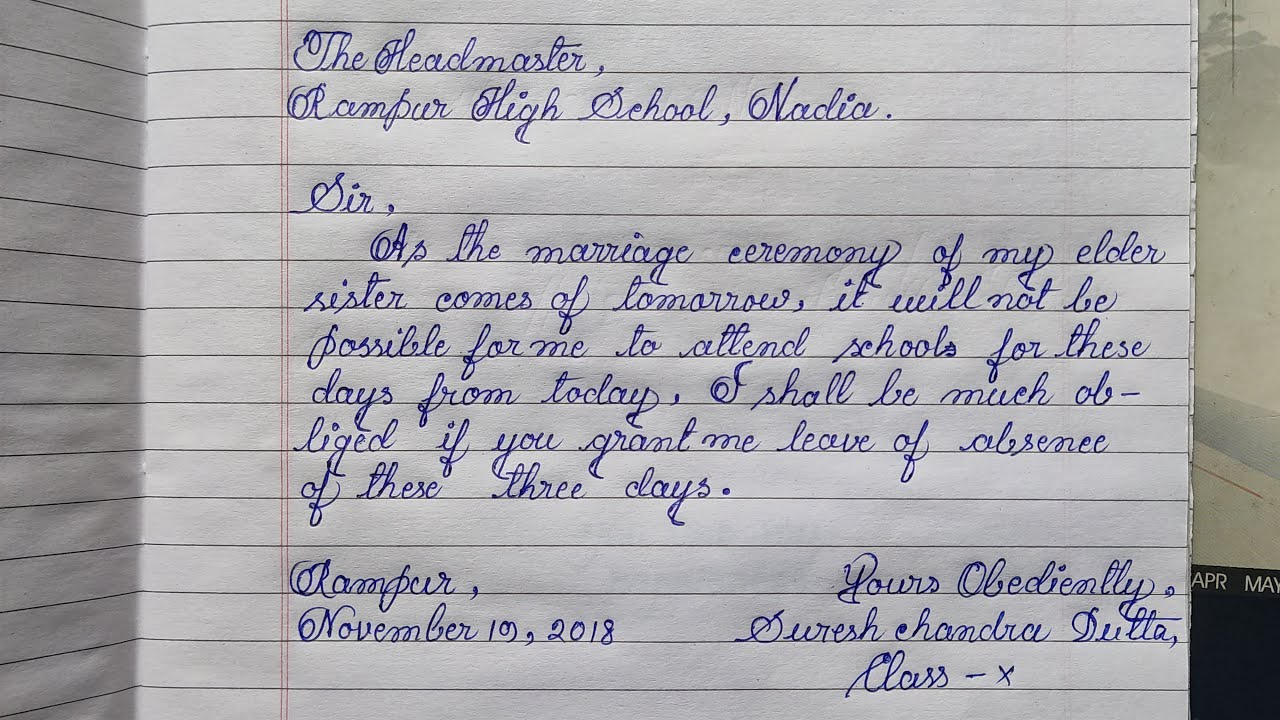 The Headmaster,
Rampur High School, Nadia.
Sir,
As the marriage ceremony of my elder
sister comes of tomorrow, it will not be
possible for me to attend schools for these
days from today. I shall be much ob-
liged if you grant me leave of absence
of these three days.
Rampur,
Yours Obediently,
November 19, 2018
Suresh chandra Dutta,
Class - x
APR MAY